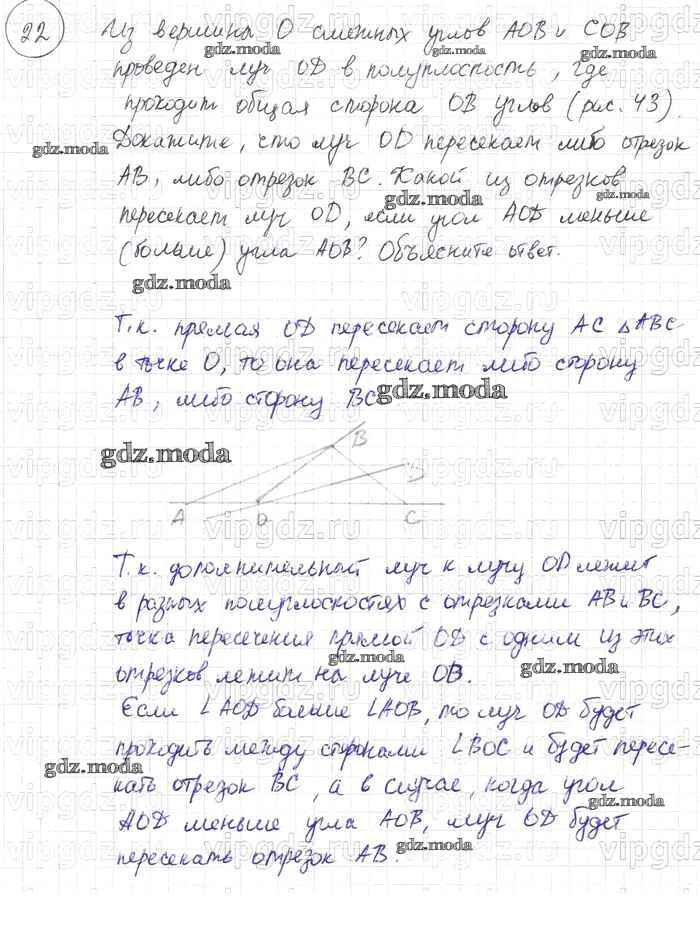 22 Из вершины О смежных углов АОВ и СОВ
проведен луч OD в полуплоскость, где
проходит общая сторона ОВ углов (рис. 43).
Докажите, что луч OD пересекает либо отрезок
АВ, либо отрезок ВС. Какой из отрезков
пересекает луч OD, если угол AOD меньше
(больше) угла АОВ? Объясните ответ.
Т.к. прямая OD пересекает сторону АС ΔАВС
в точке О, то она пересекает либо сторону
АВ, либо сторону ВС
B
D
A O C
Т.к. дополнительный луч к лучу OD лежит
в разных полуплоскостях с отрезками АВ и ВС,
точка пересечения прямой OD с одним из этих
отрезков лежит на луче OB.
Если ∠AOD больше ∠AOB, то луч OD будет
проходить между сторонами ∠BOC и будет пересе-
кать отрезок ВС, а в случае, когда угол
AOD меньше угла АОВ, луч OD будет
пересекать отрезок АВ.
gdz.moda
gdz.moda
gdz.moda
gdz.moda
gdz.moda
gdz.moda
gdz.moda
gdz.moda
gdz.moda
gdz.moda
gdz.moda
gdz.moda
vipgdz.ru